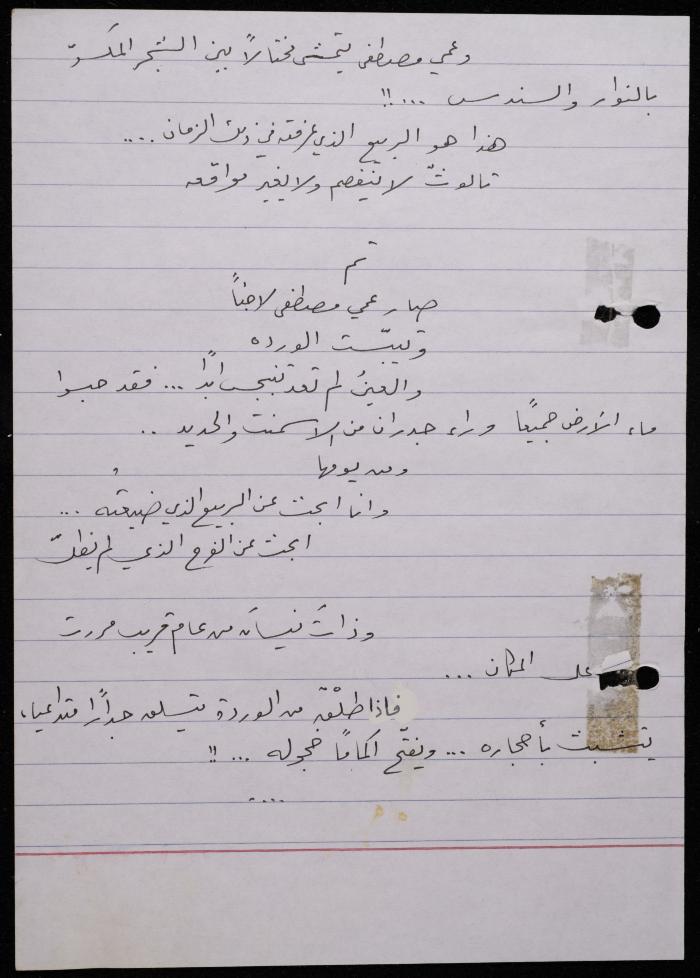 وعمي مصطفى يتمشى مختالاً بين الشجر المكسوّ
بالنوار والسندس ...!!
هذا هو الربيع الذي عرفته في ذلك الزمان ....
ثالوثٌ لا ينفصم ولا يغير مواقعه
ثم
صار عمي مصطفى لاجئاً
وتيبّست الورده
والعينُ لم تعد تنبجس ابدًا ... فقد حبسوا
ماء الأرض جميعًا وراء جدران من الاسمنت والحديد ..
ومن يومها
وانا ابحث عن الربيع الذي ضيعتُه ...
ابحث عن الفرح الذي لم يطلّ
وذات نيسان من عام قريب مررت
على المكان ...
فاذا طلْعة من الوردة تتسلق جدارًا متداعيا،
تتشبث بأحجاره ... وتفتّح اكمامًا خجوله ...!!
....